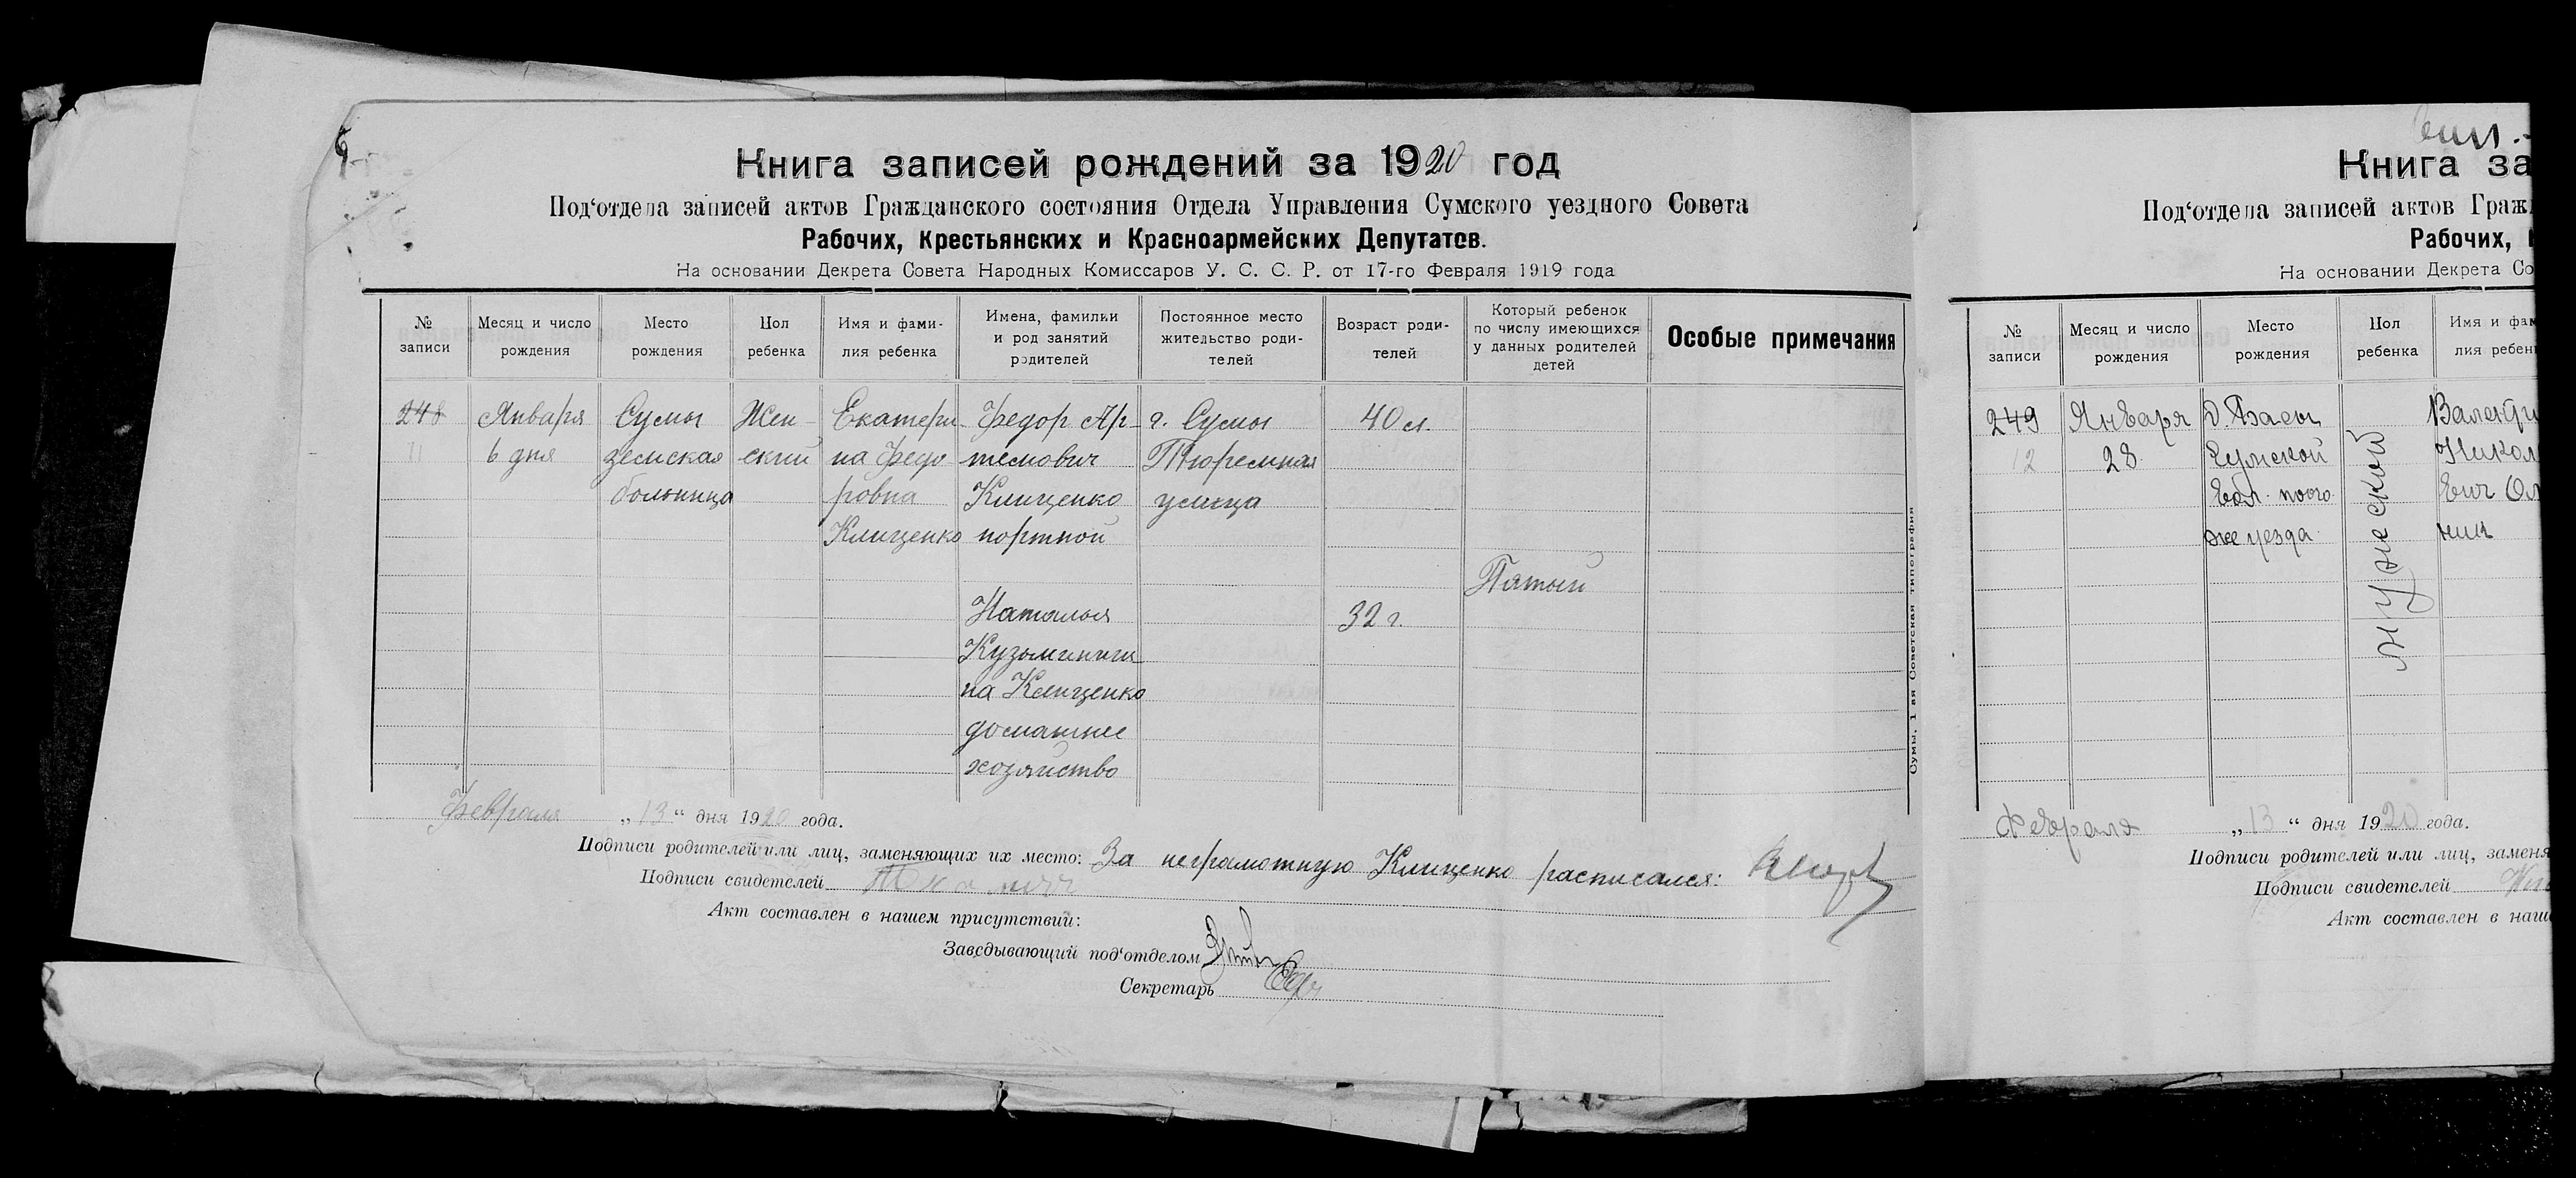 Книга записей рождений за 1920 год
Под‘отдела записей актов Гражданского состояния Отдела Управления Сумского уездного Совета
Рабочих, Крестьянских и Красноармейских Депутатов.
На основании Декрета Совета Народных Комиссаров У. С. С. Р. от 17-го Февраля 1919 года
№ записи
Месяц и число рождения
Место рождения
Пол ребенка
Имя и фами-
лия ребенка
Имена, фамилии
и род занятий
родителей
Постоянное место
жительство роди-
телей
Возраст роди-
телей
Который ребенок
по числу имеющихся
у данных родителей
детей
Особые примечания
248
11
Января
6 дня
Сумы
земская
больница
Жен-
ский
Екатери-
на Федо
ровна
Клищенко
Федор Ар-
темович
Клищенко
портной
Наталья
Кузьминич
на Клищенко
домашнее
хозяйство
г. Сумы
Тюремная
улица
40 л.
32 г.
Пятый
Февраля „13“ дня 1920 года.
Подписи родителей или лиц, заменяющих их место: За неграмотную Клищенко расписался:
Подписи свидетелей
Акт составлен в нашем присутствий:
Заведывающий под‘отделом
Секретарь
Сумы, 1 ая Советская типография
Книга за
Под‘отдела записей актов Граж
Рабочих,
На основании Декрета Со
№ записи
Месяц и число рождения
Место рождения
Пол ребенка
Имя и фам
лия ребен
249
12
Января
28
д. Басы
Сумской
вол. того
же уезда
мужеской
Валенти
Никол
евич
Февраля „13“ дня 1920 года.
Подписи родителей или лиц, заменя
Подписи свидетелей
Акт составлен в наш